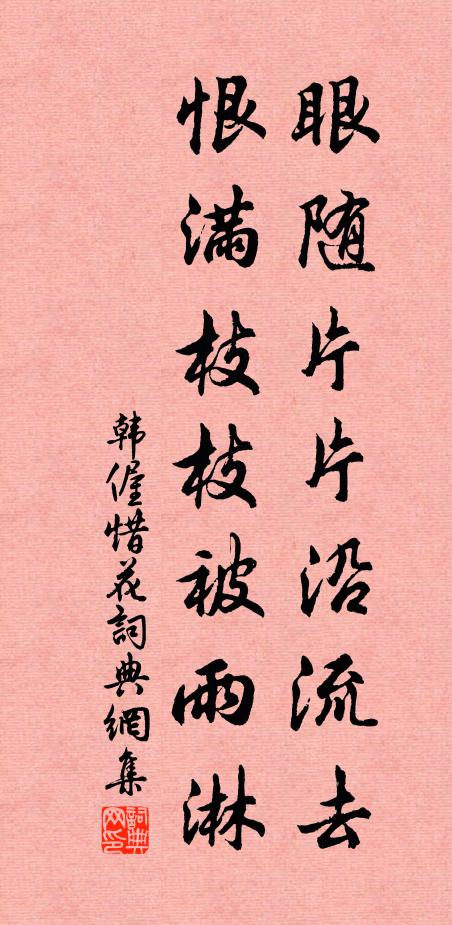 眼随片片沿流去
恨满枝枝被雨淋
韩偓惜花詞典網集
詞典网印